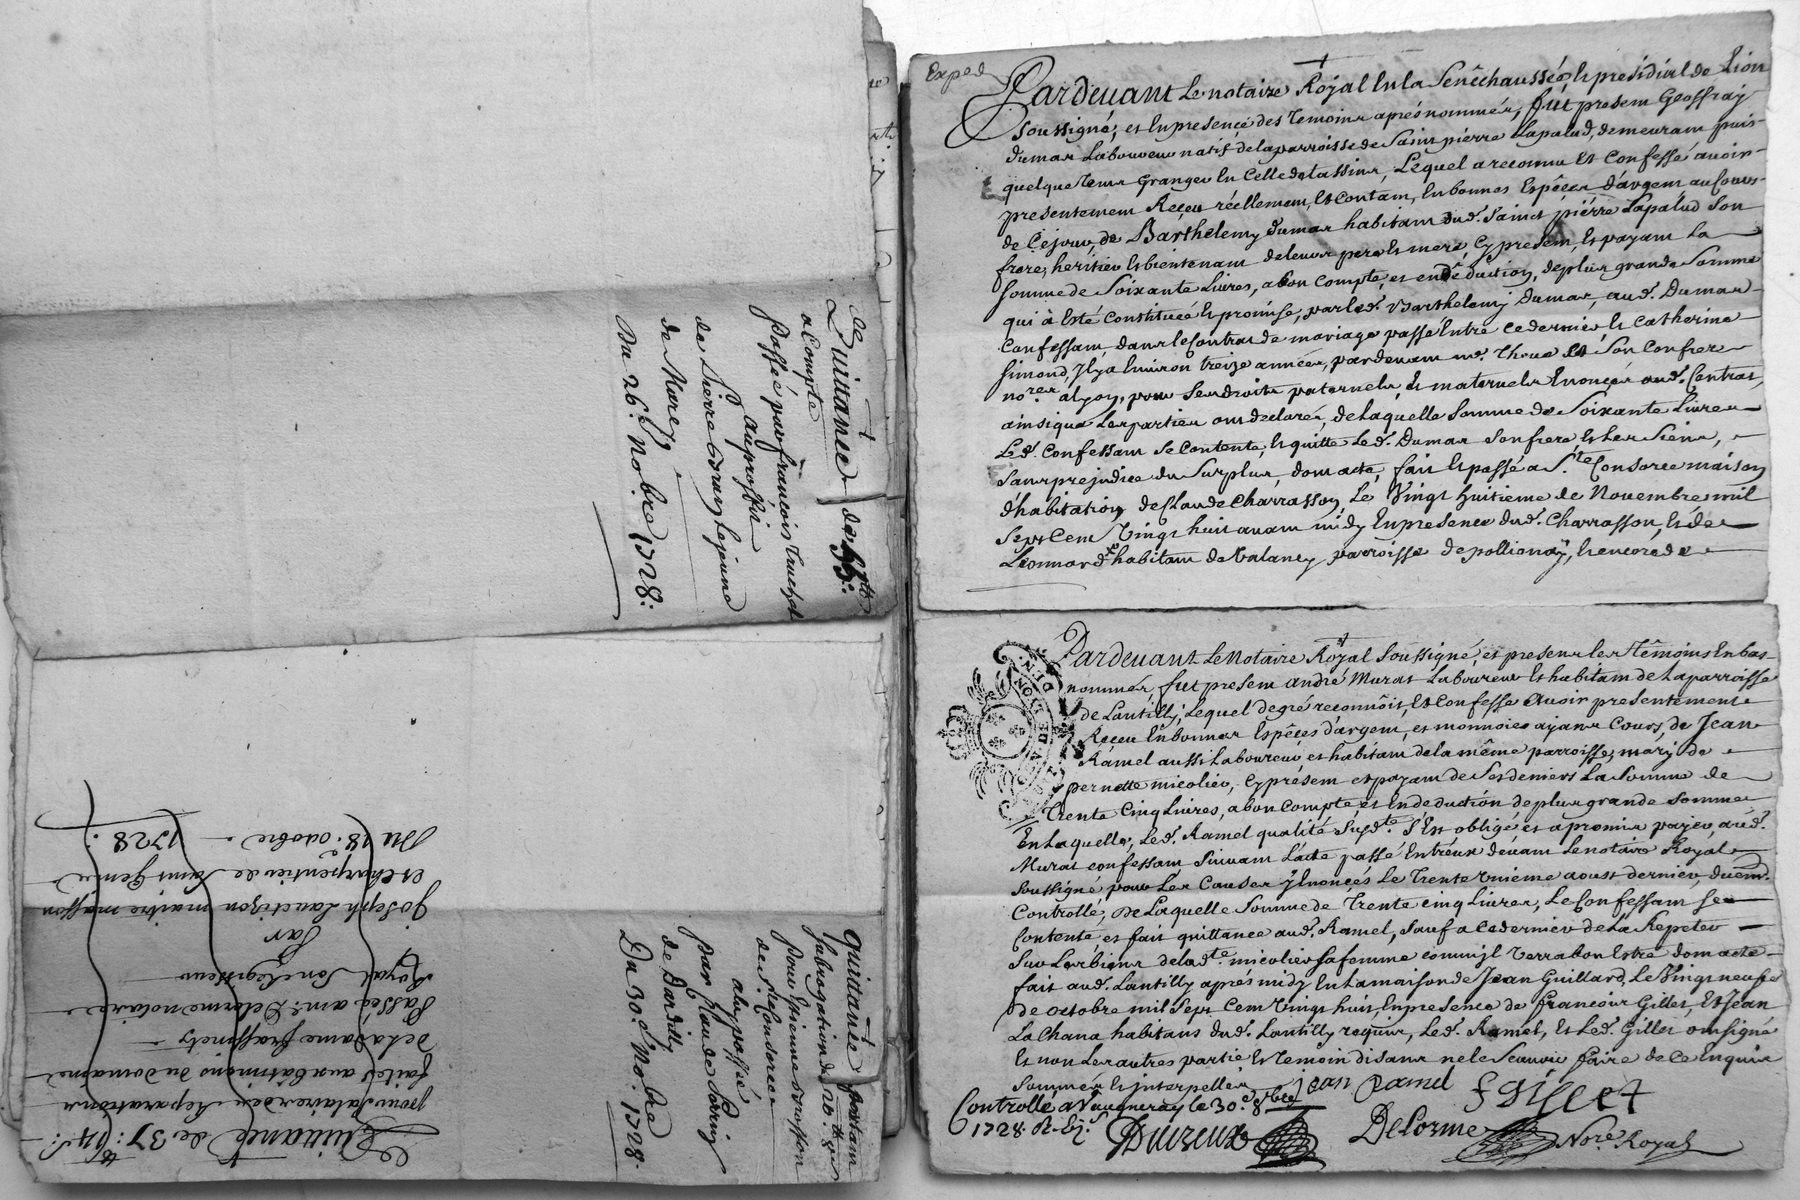 Quittance de 55.tt
a Compte
Passée par françois Truchet
au proffit
de Pierre Coran lejeune
de Marcy.
Du 26.e No.bre 1728:
Quittance de 37.tt: 14 s:
pour salaires des Reparations
faites aux bâtiments du domaine
de la dame Grassinety
Passée a m.e Delorme notaire
Royal son Regisseur
Par
Joseph maitre masson
et charpentier de saint Genis
Du 18.e octobre
1728:
quittance portant
subrogation de 20.tt 8 s
pour Etienne Buisson
de S.te Consorce
a luy passée
par Claude Perrin
de Dardilly
Du 30.e No.bre 1728.
Exped
Pardevant Le notaire Royal En la Senêchaussée et presidial de Lion
soussigné, et En presence des Temoins après nommés, fut present Geoffray
dumas Laboureur natif de la parroisse de Saint pierre Lapalud, demeurant puis
quelque Tems Granger En Celle de tassins, Lequel a reconnu Et Confessé avoir
presentement Receu réellement, Et Contant, En bonnes Espêces d'argent au Cours
de Cejour, de Barthelemy dumas habitant dud. Sainct pièrre Lapalud Son
frere, heritier Et bientenant de leurs pere Et mere Cy present, Et payant La
somme de Soixante Livres, abon Compte, et en dêduction, de plus grande Somme
qui à Esté Constituée Et promise, par led. Barthelemy Dumas, aud. Dumas
Confessant, dans le Contrat de mariage passé Entre ce dernier, Et Catherine
Simond, Il y a Environ treize années, pardevant m.e Thoue Et Son Confrere
no.res a Lyon, pour Ses droits paternels, Et maternels Enoncés aud. Contrat,
ainsi que Les parties ont declaré, de Laquelle Somme de Soixante Livres
Led. Confessant se Contente, Et quitte Led. Dumas Son frere, Et Les Siens,
Sans prejudice du Surplus, dont acte, fait Et passé a S.te Consorce maison
d'habitation de Claude Charrasson, Le Vingt huitieme de Novembre mil
Sept Cent Vingt huit avant midy En presence dud. Charrasson, Et de
Léonnard habitant de Valancy, parroisse de pollionay, Et encore de
Pardevant Le Notaire Royal Soussigné, et presens les Têmoins En bas
nommés, fut present andré Murat Laboureur Et habitant de La parroisse
de Lantilly, Lequel de gré reconnoît, Et Confesse avoir presentement
Receu En bonnes Espêces d'argent, et monnoies ayant Cours, de Jean
Ramel aussi Laboureur, et habitant de la même parroisse, mary de
pernette micolier, Cy présent et payant de Ses deniers La Somme de
Trente Cinq Livres, abon Compte, et En deduction de plus grande Somme
En Laquelle, Led. Ramel qualité Susd.te S'Est obligé, et a promis payer, aud.
Murat confessant Suivant L'acte passé Entr'eux devant Le notaire Royal
Soussigné pour Les Causes y Enoncés Le Trente unième aoust dernier, duem.t
Controllé, De Laquelle Somme de Trente cinq Livres, Le Confessant se
Contente et fait quittance aud. Ramel, Sauf a Ce dernier de La Repeter
Sur Les biens de lad.te micolier Sa femme comm'il Verra bon Estre dont acte
fait aud. Lantilly après midy En La maison de Jean Guillard, Le Vingt neuf
de octobre mil Sept Cent Vingt huit, En presence de François Gillet, Et Jean
La Chana habitans dud. Lantilly requis, Led. Ramel, Et Led. Gillet ont signé
Et non Les autres partie, Et Temoin disans ne le Scavoir faire de ce Enquis
Sommés Et interpellés
jean Ramel
f Gillet
Controllé a Vaugneray le 30.e 8bre
1728. R. Six s.
Delorme
No.re Royal